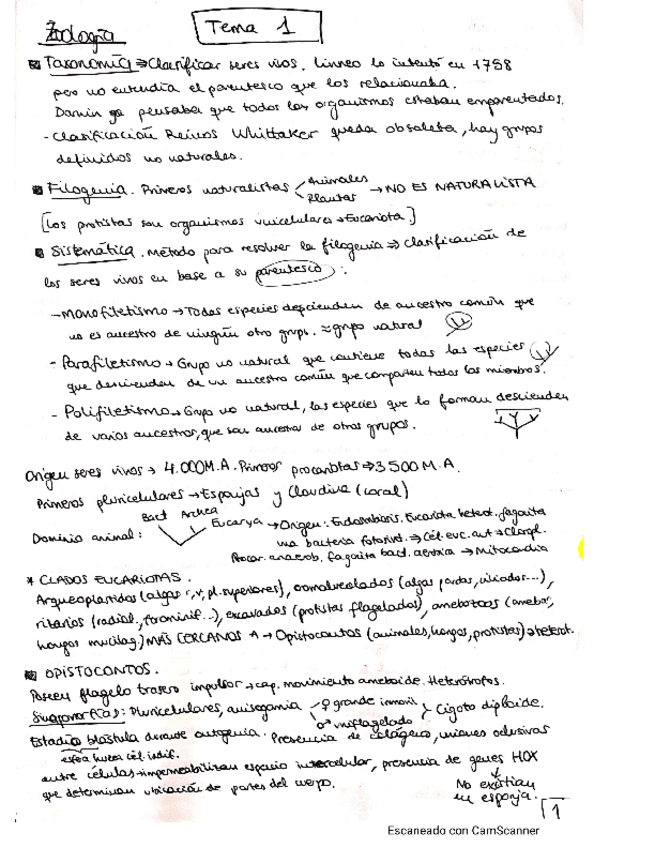 Zoología
Tema 1
Taxonomía ⇒ Clasificar seres vivos. Linneo lo intentó en 1758
pero no entendía el parentesco que los relacionaba.
Darwin ya pensaba que todos los organismos estaban emparentados.
- Clasificación Reinos Whittaker queda obsoleta, hay grupos
definidos no naturales.
Filogenia. Primeros naturalistas < Animales Plantas → NO ES NATURALISTA
[Los protistas son organismos unicelulares → Eucariota.]
Sistemática. Método para resolver la filogenia ⇒ Clasificación de
los seres vivos en base a su parentesco:
- Monofiletismo → Todas especies descienden de ancestro común que
no es ancestro de ningún otro grupo. ≈ grupo natural
- Parafiletismo → Grupo no natural que contiene todas las especies
que descienden de un ancestro común que comparten todos los miembros.
- Polifiletismo → Grupo no natural, las especies que lo forman descienden
de varios ancestros, que son ancestros de otros grupos.
Origen seres vivos → 4.000M.A. Primeros procariotas ⇒ 3500 M.A.
Primeros pluricelulares → Esponjas y Claudina (coral)
Dominio animal: Bact Archea Eucarya → Origen: Endosimbiosis. Eucariota heterot. fagocita
una bacteria fotosint. ⇒ Cél. euc. aut → Cloropl.
Procar. anaerob. fagocita bact. aerobia → Mitocondia
* CLADOS EUCARIOTAS.
Arqueoplastidos (algas r, v, pl. superiores), cromalveolados (algas pardas, ciliados...),
rizarios (radiol., foraminif..), excavados (protistas flagelados), amebozoos (amebas,
hongos mucilag.) MÁS CERCANOS A → Opistocontos (animales, hongos, protistas) → heterot.
OPISTOCONTOS.
Poseen flagelo trasero impulsor → cap. movimiento ameboide. Heterótrofos.
Sinapomorfía(s): Pluricelulares, anisogamia ♀ grande inmovil ♂ uniflagelado } Cigoto diploide.
Estadio blástula durante ontogenia. Presencia de colágeno, uniones oclusivas
esfera hueca cél. indif.
entre células → impermeabilizan espacio intercelular, presencia de genes HOX
que determinan ubicación de partes del cuerpo.
No existían
en esponja.
1
Escaneado con CamScanner